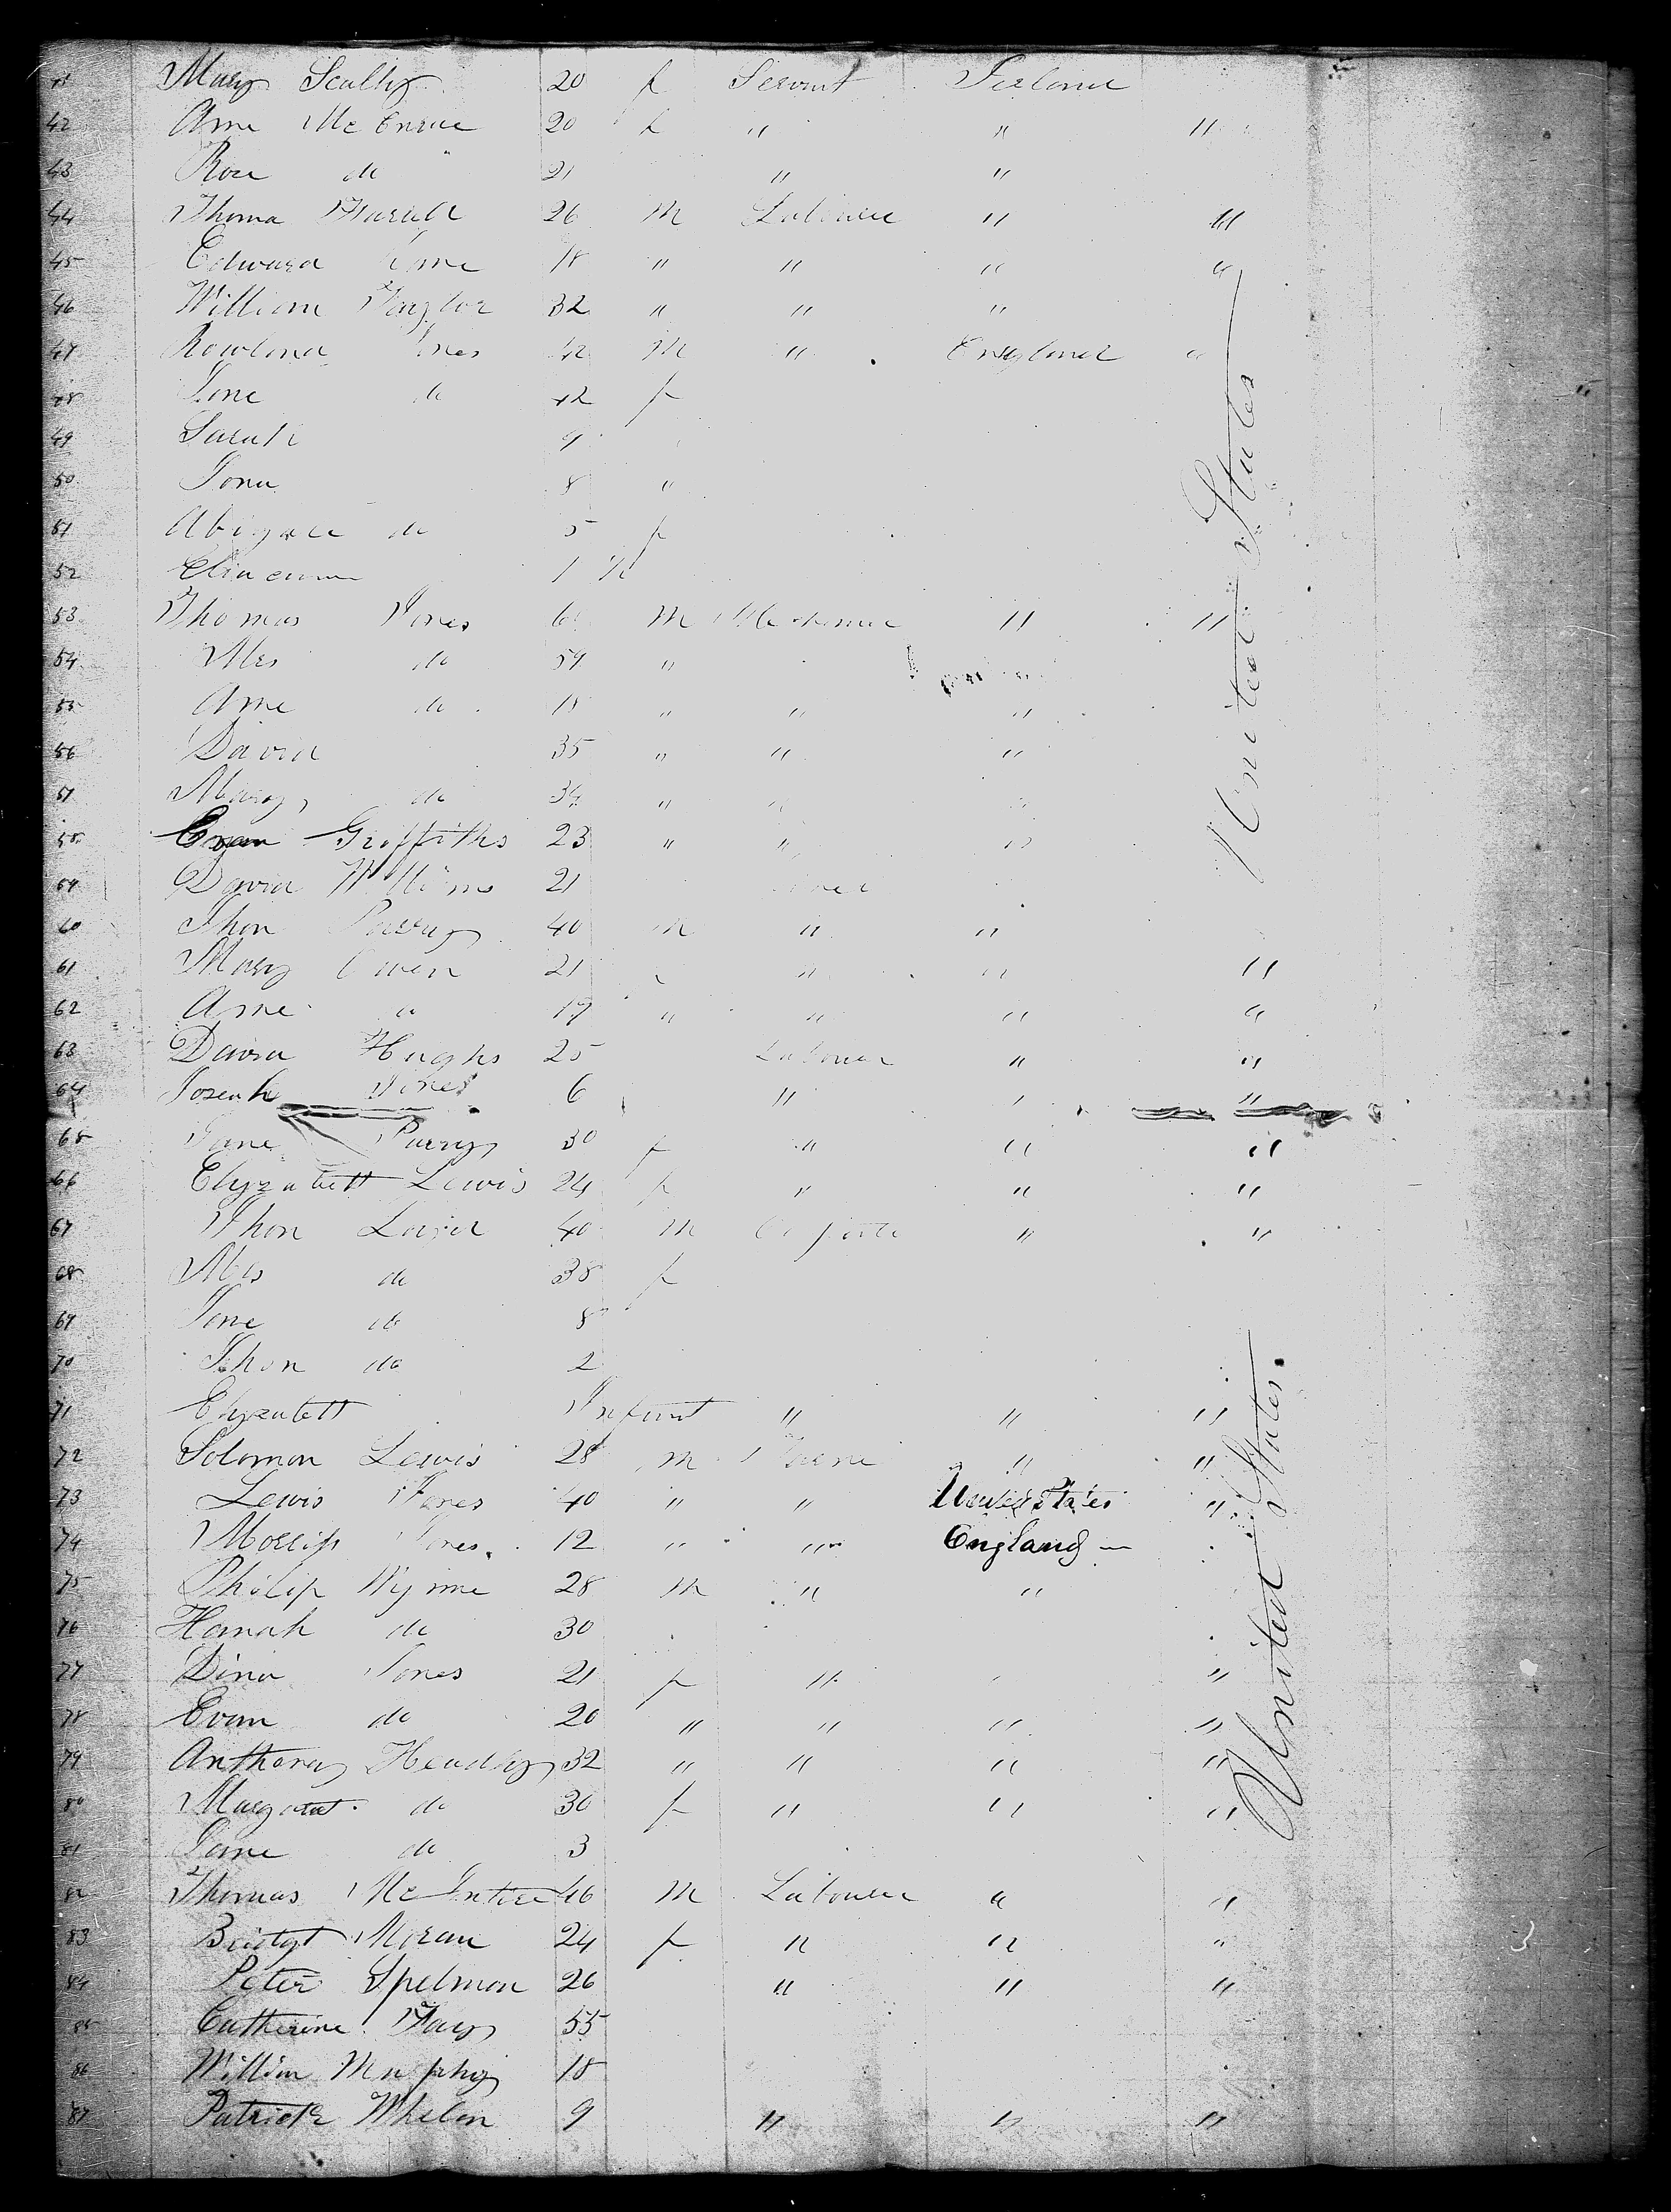 41 Mary Scully 20 f Servant Ireland
42 Ann 20 f " " "
43 Rose do 21 " "
44 Thoma 26 M Labourer " "
45 Edward 18 " " " "
46 William Taylor 32 " " "
47 Rowland Jones 42 M " England "
48 Jane do 42 f
49 Sarah 9
50 Jona 8 "
51 Abigale do 5 f
52 1
53 Thomas Jones M " "
54 Mrs do 54 "
55 Ane do 18 " " "
56 David 35 " " "
57 Mary do 34 " " "
58 Evan Griffiths 23 " " "
59 David Williams 21
60 Jhon Parry 40 M " "
61 Mary Owen 21 " " "
62 Ane " 19 " " " "
63 David Hughs 25 Labourer " "
64 Joseph Jones 6 " "
65 Jane Parry 30 f " " "
66 Elyzabett Lewis 24 f " " "
67 Jhon 40 M " "
68 Mrs do 38 f
69 Jane do 8
70 Jhon do 2
71 Elyzabett Infant " " "
72 Solomon Lewis 28 M " "
73 Lewis Jones 40 " " United States "
74 Jones 12 " " England
75 Philip Wynne 28 M " "
76 Hanah do 30
77 Dina Jones 21 f " "
78 Evan do 20 " " " "
79 Anthony Headly 32 " " " "
80 Margarat do 30 f " " "
81 Jane do 3
82 Thomas McIntire 46 M Labourer " "
83 Bridgt Moran 24 f " " "
84 Peter Spelman 26 " " "
85 Catherine 55
86 William Murphy 18
87 Patrick Whelan 9 " " "
United States
United States.
3